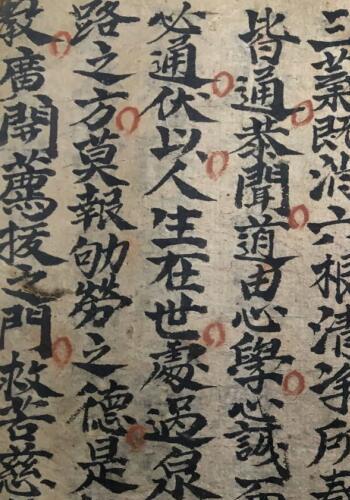 三業既消六根清净所
皆通恭聞道由心學心誠
必通伏以人生在世處過泉
路之方莫報劬勞之德是
教廣開薦拔之門救苦慈